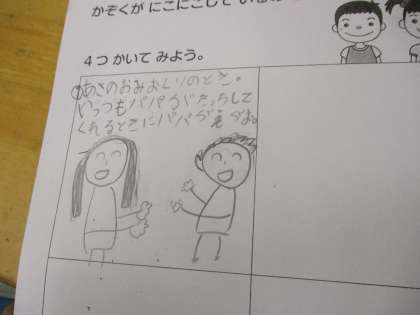 かぞくが にこにこして いる
4つ かいて みよう。
①あさのおみおくりのとき。
いっつもパパがたっちして
くれるときにパパがえがお。